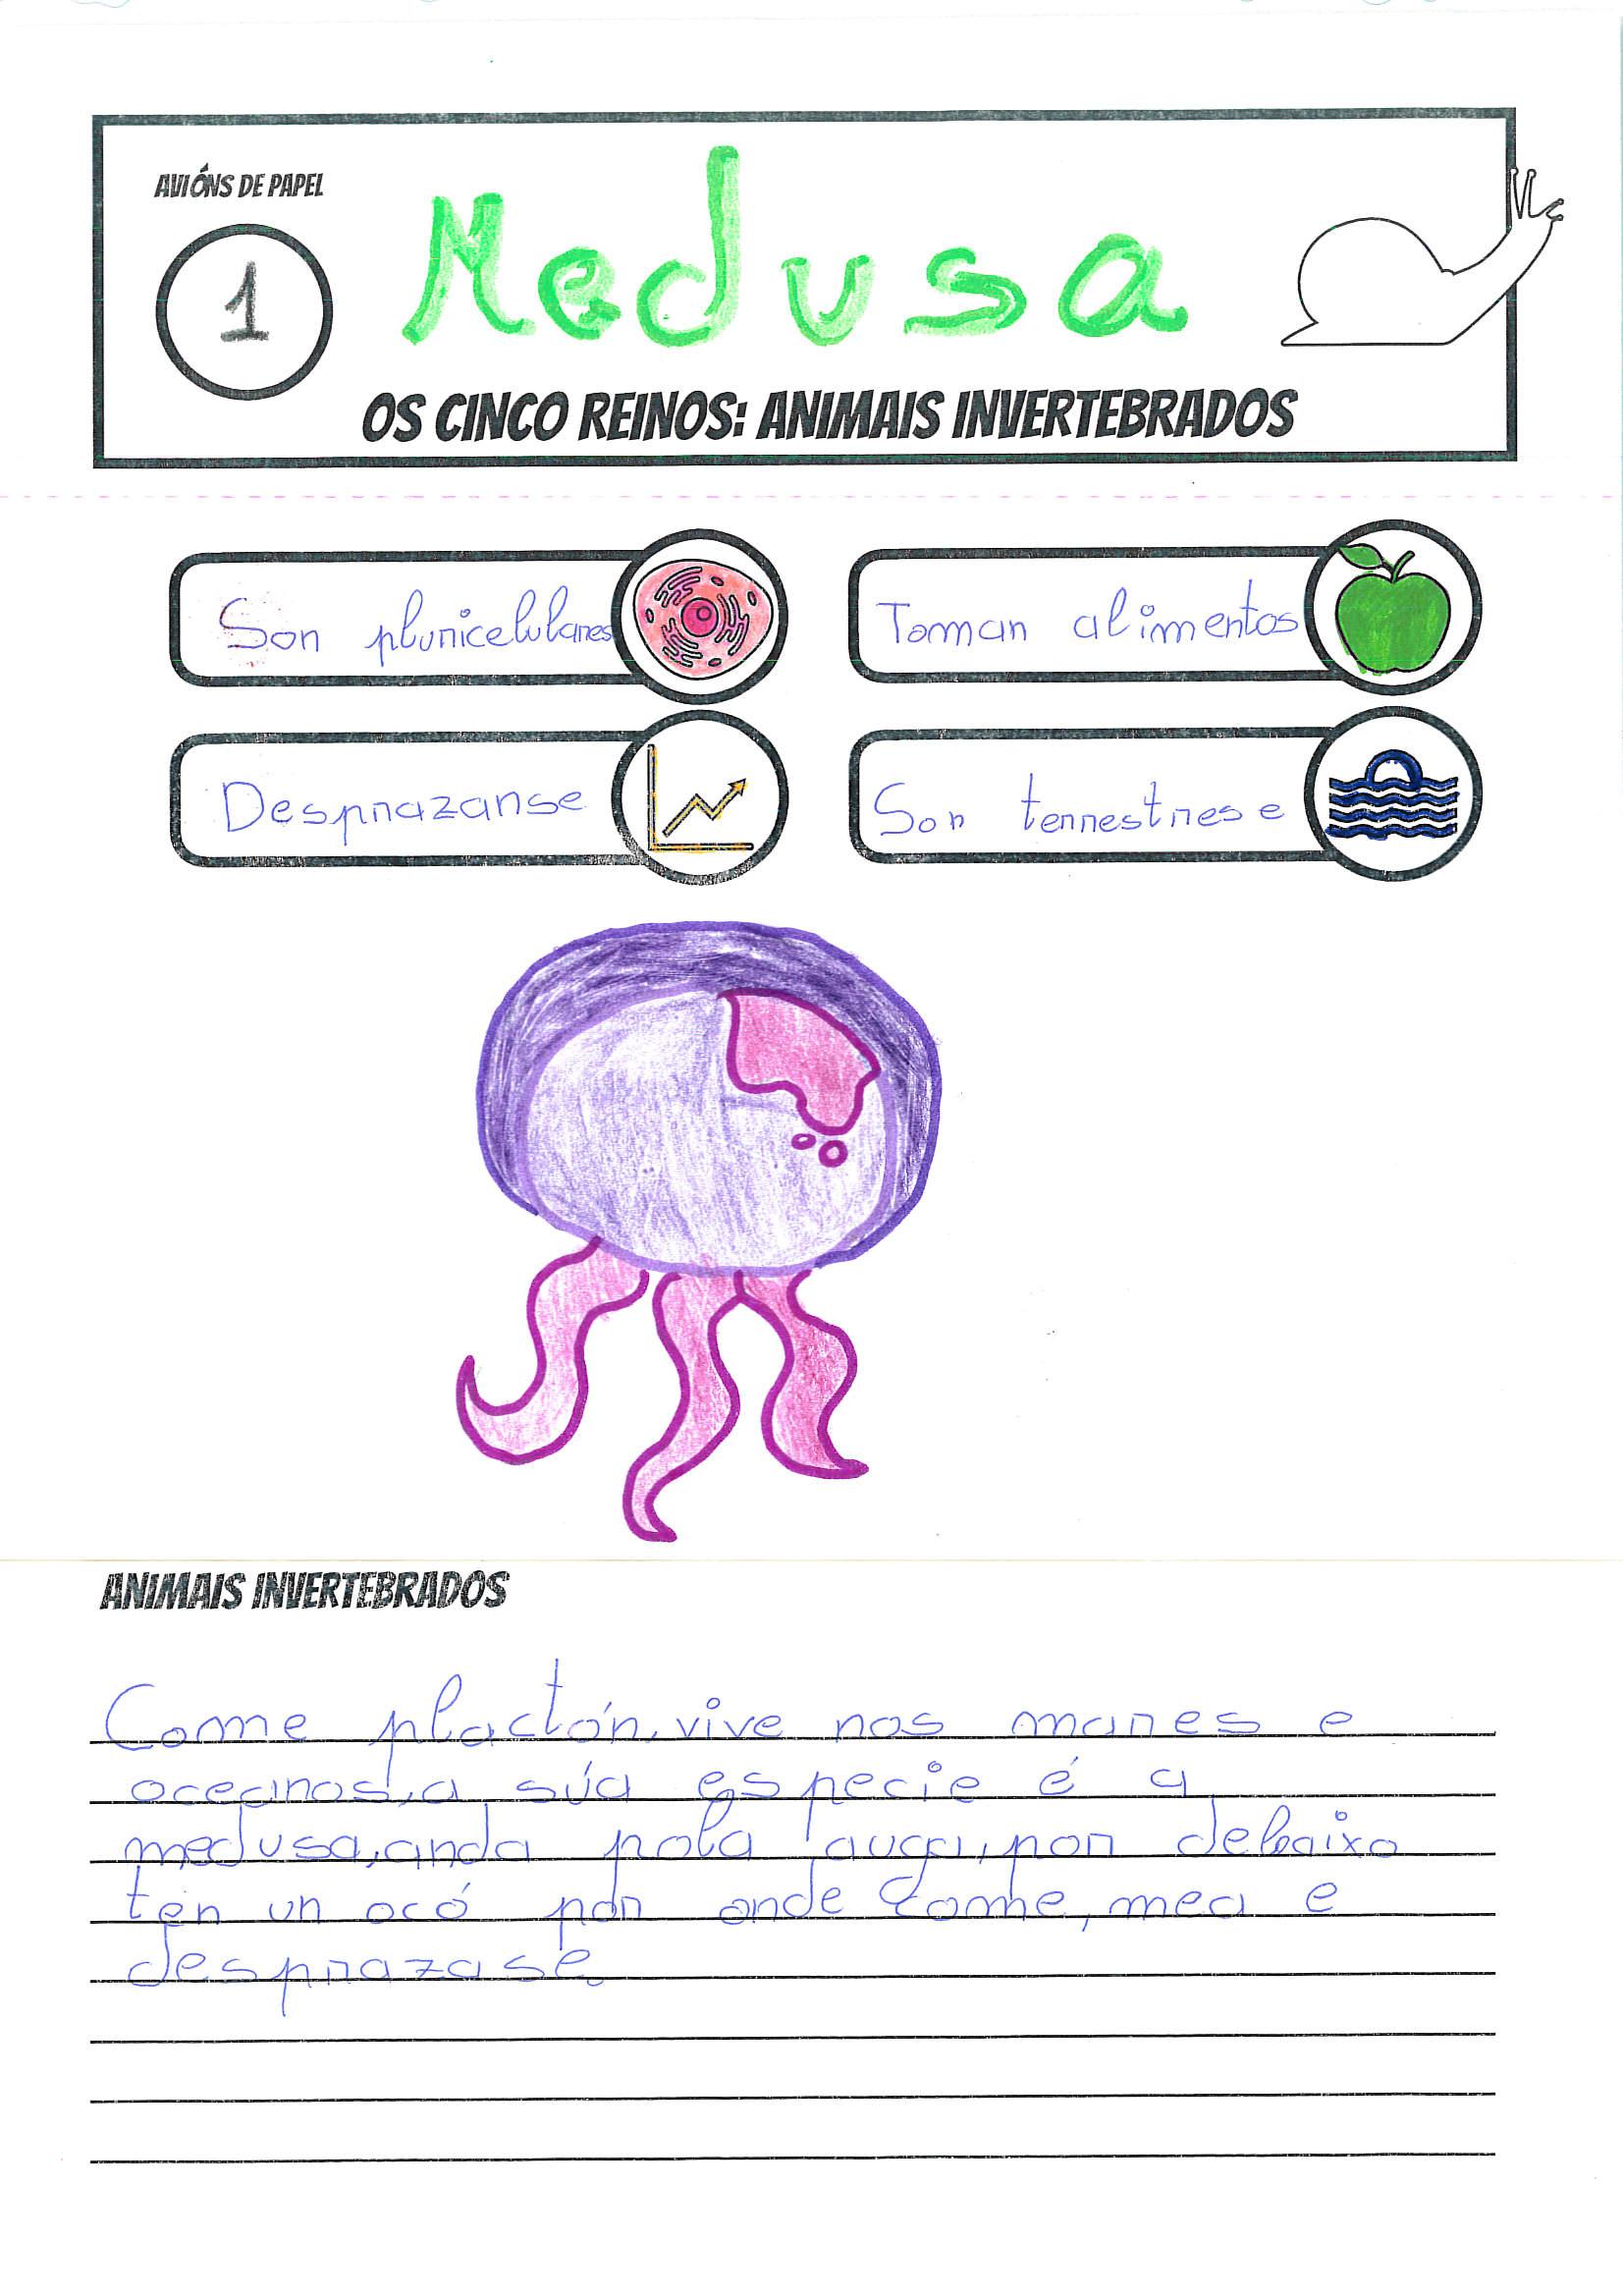 AVIÓNS DE PAPEL
1
Medusa
OS CINCO REINOS: ANIMAIS INVERTEBRADOS
Son pluricelulares
Toman alimentos
Desprazanse
Son terrestres e
ANIMAIS INVERTEBRADOS
Come plactón, vive nos mares e
oceanos, a súa especie é a
medusa, anda pola auga, por debaixo
ten un ocó por onde come, mea e
desprazase.